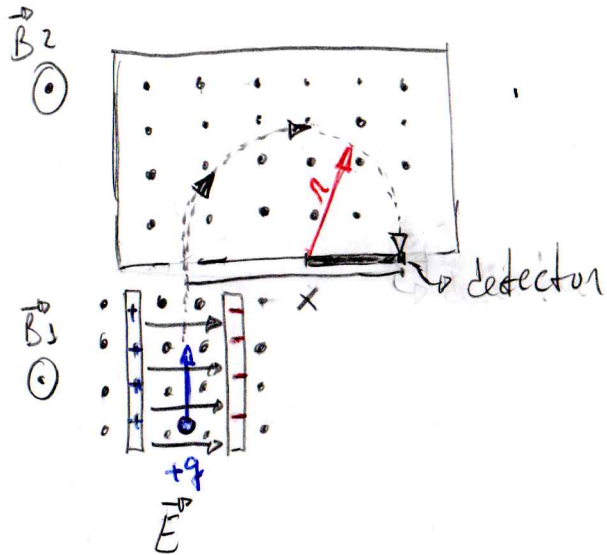 B2
r
detector
x
B1
+ −
+ −
+ −
+ −
+q
E